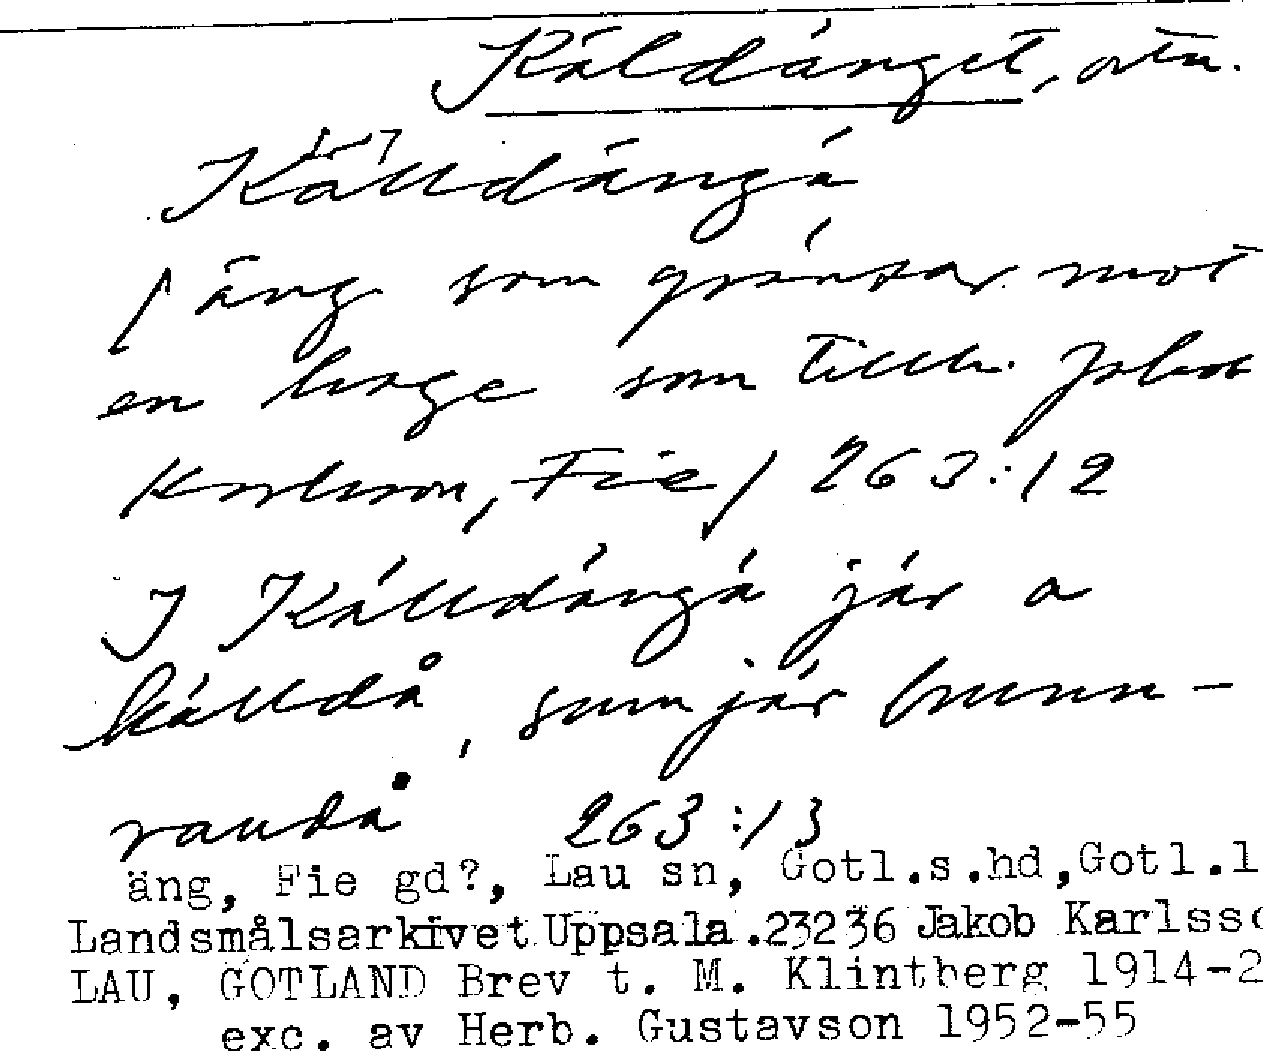 Käldänget, ortn.
Källdängä
/ äng som gränsar mot
en hage som tillh. Jakob
Karlsson, Fie / 263:12
I Källdängä jär a
källdå, sum jär brunn-
raudå 263:13
äng, Fie gd?, Lau sn, Gotl.s.hd,Gotl.l
Landsmålsarkivet Uppsala.23236 Jakob Karlsso
LAU, GOTLAND Brev t. M. Klintberg 1914-2
exc. av Herb. Gustavson 1952-55